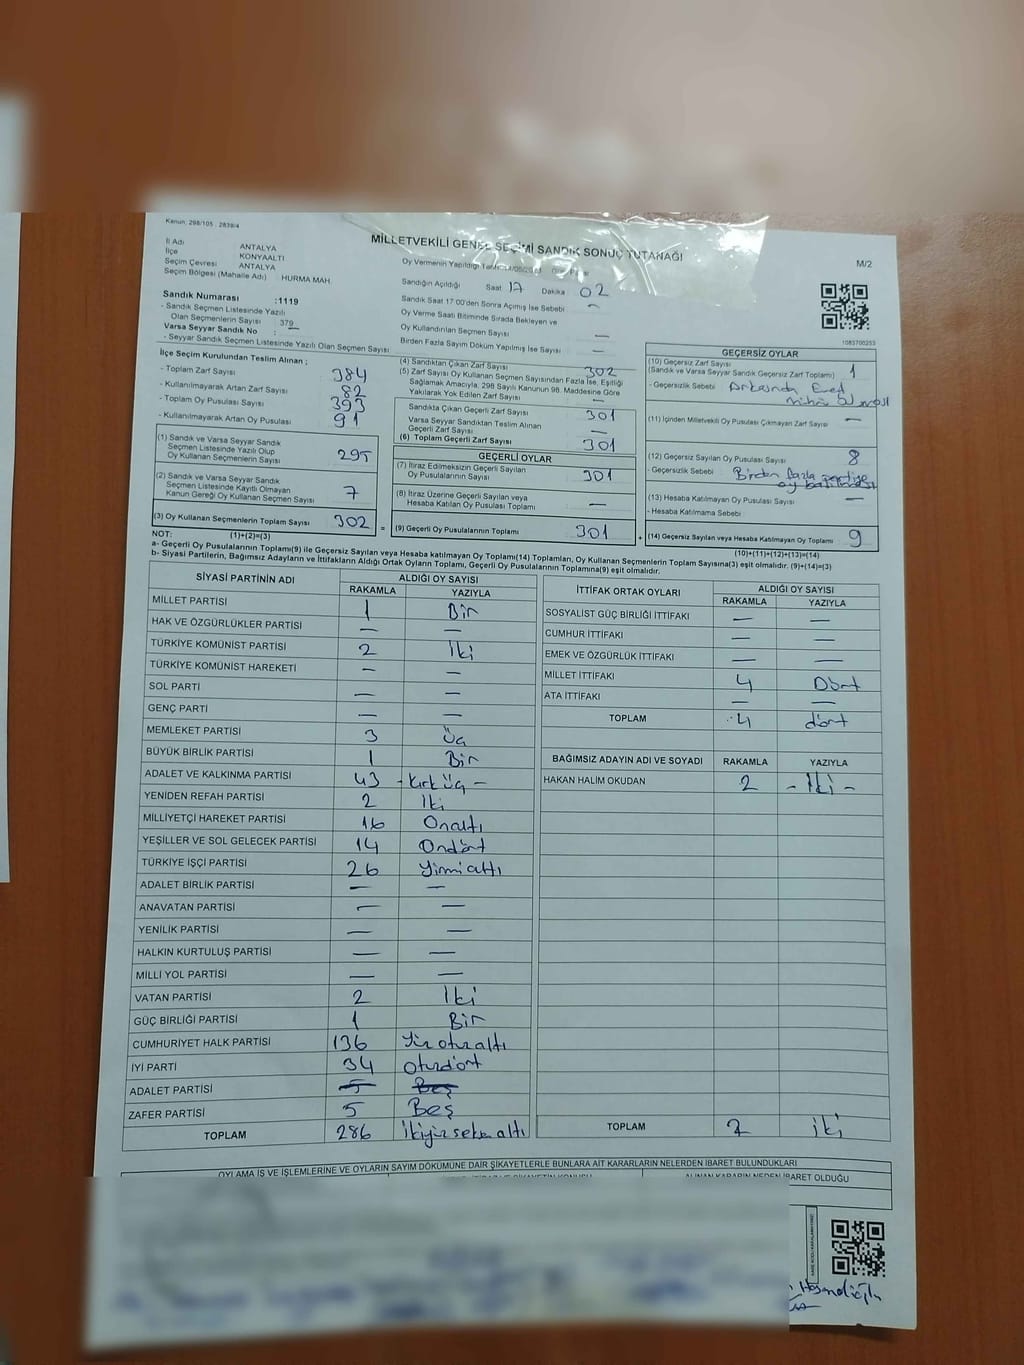 Kanun: 298/105 2839/4
MİLLETVEKİLİ GENEL SEÇİMİ SANDIK SONUÇ TUTANAĞI
M/2
İl Adı ANTALYA
İlçe KONYAALTI
Seçim Çevresi ANTALYA
Seçim Bölgesi (Mahalle Adı) HURMA MAH.
Sandık Numarası :1119
- Sandık Seçmen Listesinde Yazılı
Olan Seçmenlerin Sayısı : 379
Varsa Seyyar Sandık No :
- Seyyar Sandık Seçmen Listesinde Yazılı Olan Seçmen Sayısı
Oy Vermenin Yapıldığı
Sandığın Açıldığı Saat 17 Dakika 02
Sandık Saat 17.00'den Sonra Açımış İse Sebebi —
Oy Verme Saati Bitiminde Sırada Bekleyen ve
Oy Kullandırılan Seçmen Sayısı —
Birden Fazla Sayım Döküm Yapılmış İse Sayısı —
1083700253
İlçe Seçim Kurulundan Teslim Alınan ;
- Toplam Zarf Sayısı 384
- Kullanılmayarak Artan Zarf Sayısı 82
- Toplam Oy Pusulası Sayısı 393
- Kullanılmayarak Artan Oy Pusulası 91
(1) Sandık ve Varsa Seyyar Sandık
Seçmen Listesinde Yazılı Olup
Oy Kullanan Seçmenlerin Sayısı 295
(2) Sandık ve Varsa Seyyar Sandık
Seçmen Listesinde Kayıtlı Olmayan
Kanun Gereği Oy Kullanan Seçmen Sayısı 7
(3) Oy Kullanan Seçmenlerin Toplam Sayısı 302 =
(1)+(2)=(3)
(4) Sandıktan Çıkan Zarf Sayısı 302
(5) Zarf Sayısı Oy Kullanan Seçmen Sayısından Fazla İse, Eşitliği
Sağlamak Amacıyla, 298 Sayılı Kanunun 98. Maddesine Göre
Yakılarak Yok Edilen Zarf Sayısı —
Sandıkta Çıkan Geçerli Zarf Sayısı 301
Varsa Seyyar Sandıktan Teslim Alınan
Geçerli Zarf Sayısı —
(6) Toplam Geçerli Zarf Sayısı 301
GEÇERLİ OYLAR
(7) İtiraz Edilmeksizin Geçerli Sayılan
Oy Pusulalarının Sayısı 301
(8) İtiraz Üzerine Geçerli Sayılan veya
Hesaba Katılan Oy Pusulası Toplamı —
(9) Geçerli Oy Pusulalarının Toplamı 301 +
GEÇERSİZ OYLAR
(10) Geçersiz Zarf Sayısı
(Sandık ve Varsa Seyyar Sandık Geçersiz Zarf Toplamı) 1
- Geçersizlik Sebebi : Arkasında Evet
mührü olması
(11) İçinden Milletvekili Oy Pusulası Çıkmayan Zarf Sayısı —
(12) Geçersiz Sayılan Oy Pusulası Sayısı 8
- Geçersizlik Sebebi : Birden fazla partiye
oy
(13) Hesaba Katılmayan Oy Pusulası Sayısı —
- Hesaba Katılmama Sebebi :
(14) Geçersiz Sayılan veya Hesaba Katılmayan Oy Toplamı 9
(10)+(11)+(12)+(13)=(14)
NOT:
a- Geçerli Oy Pusulalarının Toplamı(9) ile Geçersiz Sayılan veya Hesaba katılmayan Oy Toplamı(14) Toplamları, Oy Kullanan Seçmenlerin Toplam Sayısına(3) eşit olmalıdır. (9)+(14)=(3)
b- Siyasi Partilerin, Bağımsız Adayların ve İttifakların Aldığı Ortak Oyların Toplamı, Geçerli Oy Pusulalarının Toplamına(9) eşit olmalıdır.
SİYASİ PARTİNİN ADI ALDIĞI OY SAYISI
RAKAMLA YAZIYLA
MİLLET PARTİSİ 1 Bir
HAK VE ÖZGÜRLÜKLER PARTİSİ — —
TÜRKİYE KOMÜNİST PARTİSİ 2 İki
TÜRKİYE KOMÜNİST HAREKETİ — —
SOL PARTİ — —
GENÇ PARTİ — —
MEMLEKET PARTİSİ 3 Üç
BÜYÜK BİRLİK PARTİSİ 1 Bir
ADALET VE KALKINMA PARTİSİ 43 - Kırk Üç -
YENİDEN REFAH PARTİSİ 2 İki
MİLLİYETÇİ HAREKET PARTİSİ 16 Onaltı
YEŞİLLER VE SOL GELECEK PARTİSİ 14 Ondört
TÜRKİYE İŞÇİ PARTİSİ 26 Yirmi altı
ADALET BİRLİK PARTİSİ — —
ANAVATAN PARTİSİ — —
YENİLİK PARTİSİ — —
HALKIN KURTULUŞ PARTİSİ — —
MİLLİ YOL PARTİSİ — —
VATAN PARTİSİ 2 İki
GÜÇ BİRLİĞİ PARTİSİ 1 Bir
CUMHURİYET HALK PARTİSİ 136 Yüz otuz altı
İYİ PARTİ 34 otuzdört
ADALET PARTİSİ 5 Beş
ZAFER PARTİSİ 5 Beş
TOPLAM 286 ikiyüz seksen altı
İTTİFAK ORTAK OYLARI ALDIĞI OY SAYISI
RAKAMLA YAZIYLA
SOSYALİST GÜÇ BİRLİĞİ İTTİFAKI — —
CUMHUR İTTİFAKI — —
EMEK VE ÖZGÜRLÜK İTTİFAKI — —
MİLLET İTTİFAKI 4 Dört
ATA İTTİFAKI — —
TOPLAM 4 dört
BAĞIMSIZ ADAYIN ADI VE SOYADI RAKAMLA YAZIYLA
HAKAN HALİM OKUDAN 2 - İki -
TOPLAM 2 iki
OYLAMA İŞ VE İŞLEMLERİNE VE OYLARIN SAYIM DÖKÜMÜNE DAİR ŞİKAYETLERLE BUNLARA AİT KARARLARIN NELERDEN İBARET BULUNDUKLARI
ALINAN KARARIN NEDEN İBARET OLDUĞU